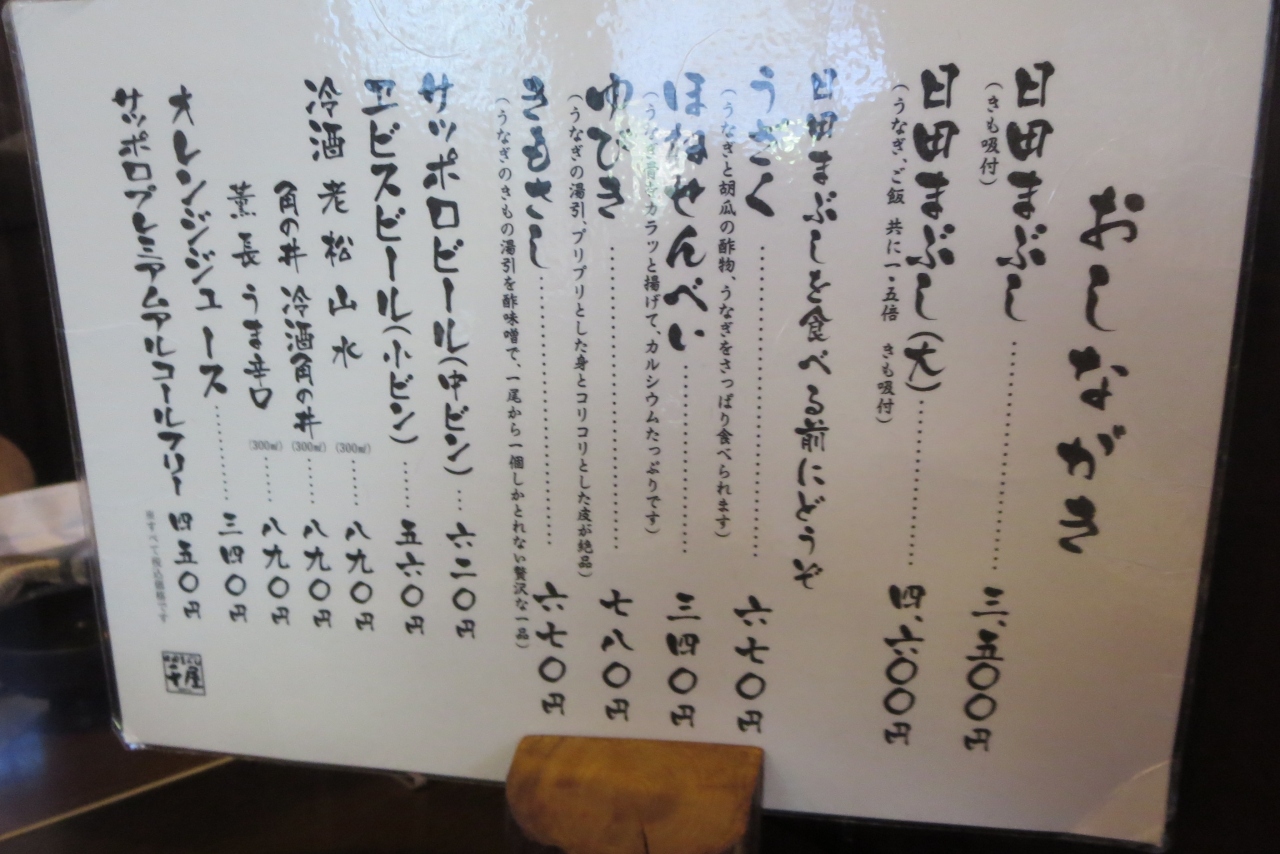 おしながき
日田まぶし ………… 三、五〇〇円
(きも吸付)
日田まぶし(大) ………… 四、六〇〇円
(うなぎ、ご飯 共に一・五倍 きも吸付)
日田まぶしを食べる前にどうぞ
うざく ………… 六七〇円
(うなぎと胡瓜の酢物、うなぎをさっぱり食べられます)
ほねせんべい ………… 三四〇円
(うなぎ骨をカラッと揚げて、カルシウムたっぷりです)
ゆびき ………… 七八〇円
(うなぎの湯引、プリプリとした身とコリコリとした皮が絶品)
きもさし ………… 六七〇円
(うなぎのきもの湯引を酢味噌で、一尾から一個しかとれない贅沢な一品)
サッポロビール(中ビン) … 六二〇円
エビスビール(小ビン) …… 五六〇円
冷酒 老松 山水 (300㎖) …… 八九〇円
角の井 冷酒角の井 (300㎖) …… 八九〇円
薫長 うま辛口 (300㎖) …… 八九〇円
オレンジジュース ……… 三四〇円
サッポロプレミアムアルコールフリー 四五〇円
※すべて税込価格です
千屋